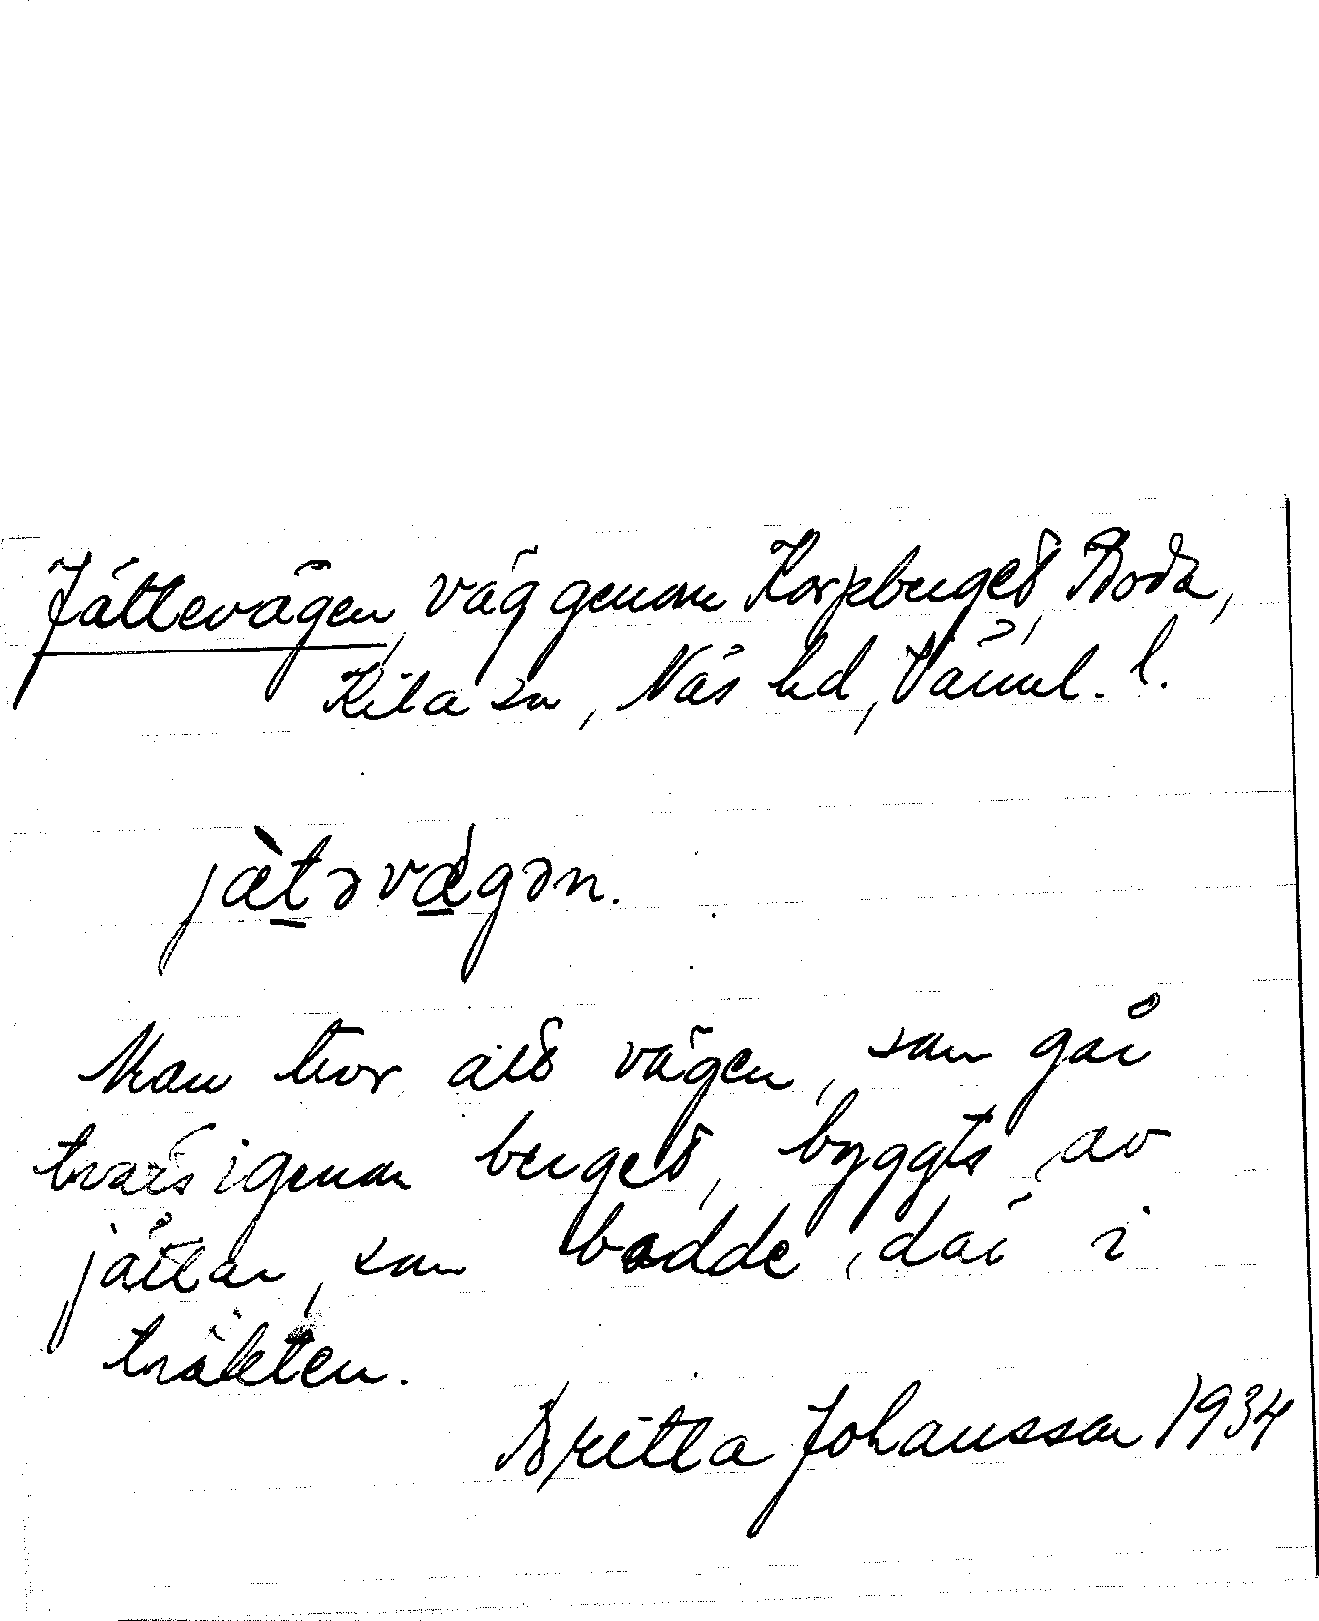 Jättevägen, väg genom Korpberget, Boda,
Kila sn, Näs hd, Värml. l.
jä̀tǝvä́gǝn.
Man tror att vägen, som går
tvärs igenom berget, byggts av
jättar, som bodde där i
trakten.
Britta Johansson 1934